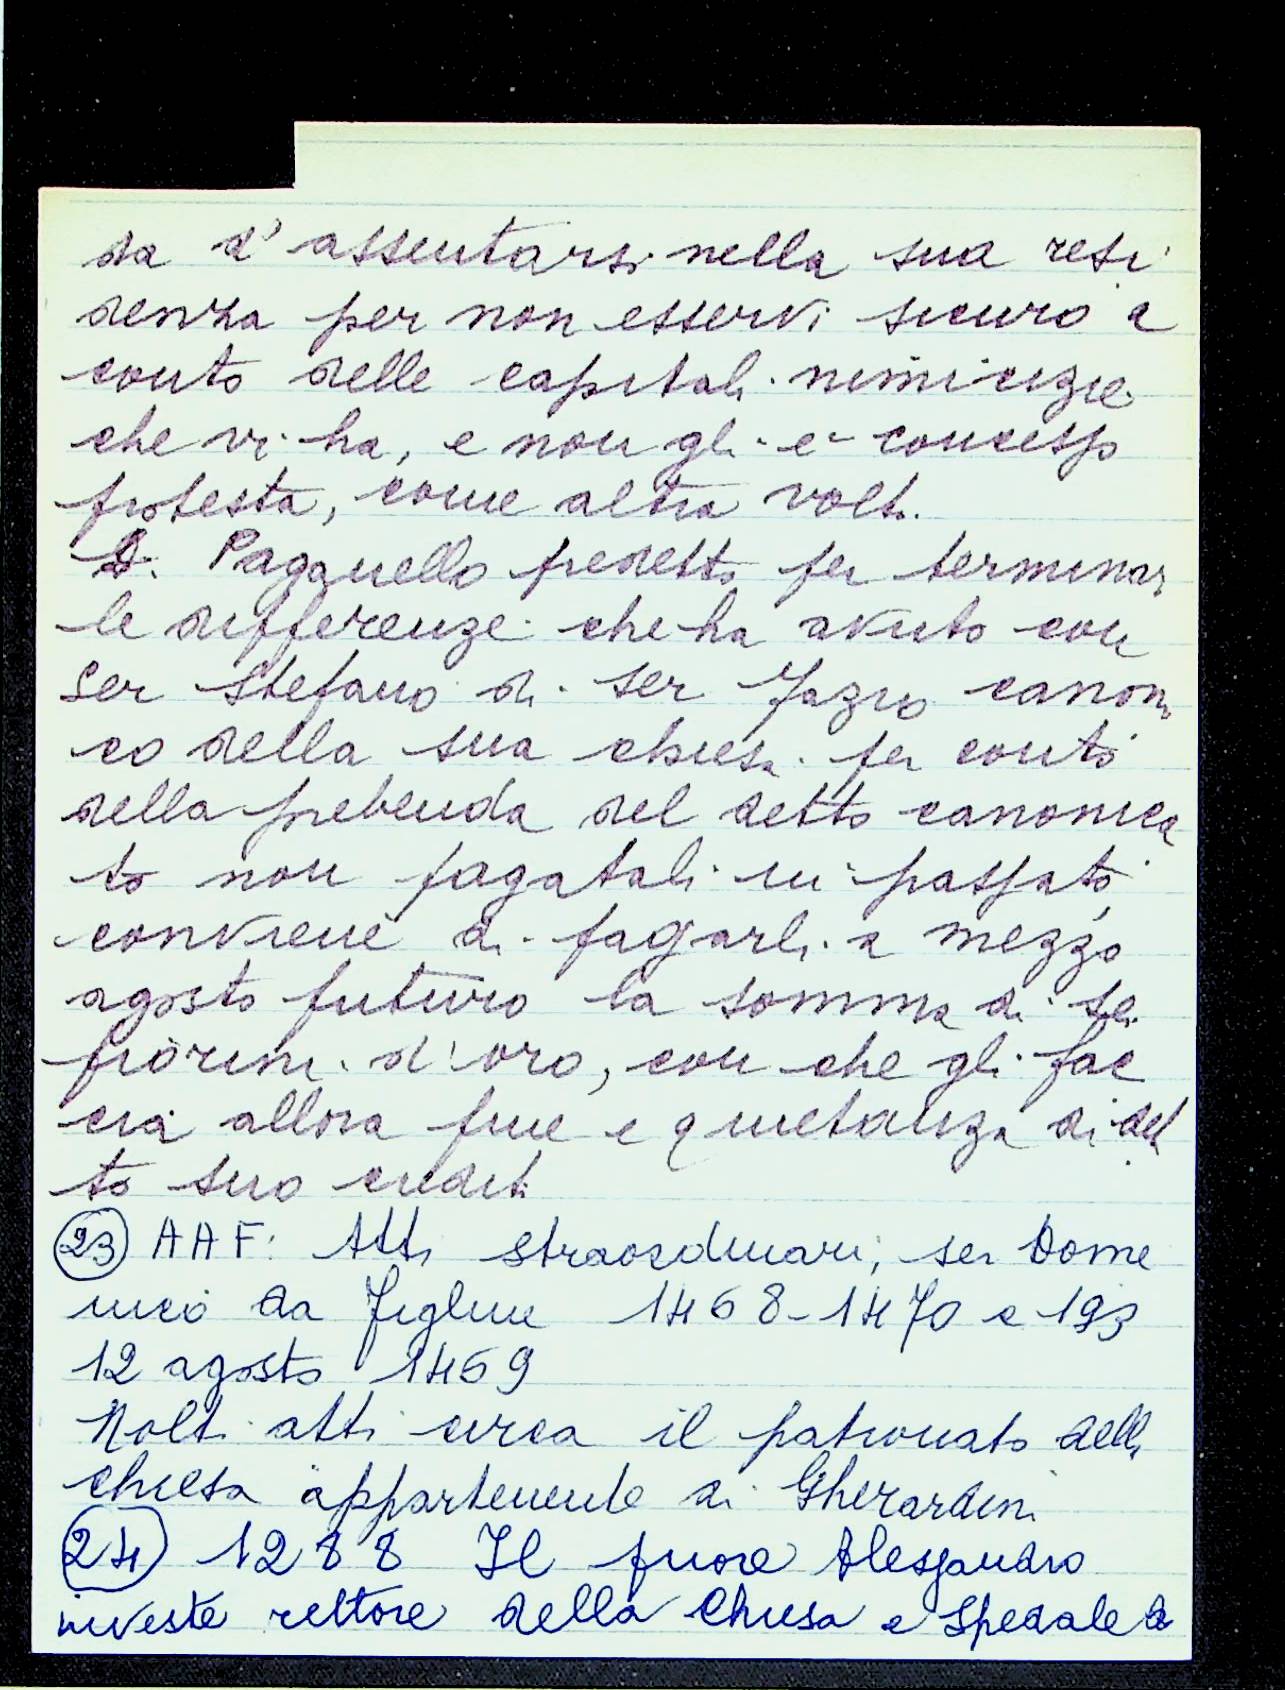 da d'assentarsi nella sua resi
denza per non esservi sicuro a
conto delle capitali nimicizie
che vi ha, e non gli è concesso
protesta, come altra volta.
D. Paganello predetto per terminar
le differenze che ha avuto con
ser Stefano di ser Fazio canoni
co della sua chiesa per conto
della prebenda del detto canonica
to non pagatali in passato,
conviene di pagarli a mezzo
agosto futuro la somma di sei
fiorini d'oro, con che gli fac
cia allora fine e quietanza di det
to suo credito
(23) AAF: Atti straordinari, ser Dome
nico da Figline 1468-1470 c 193
12 agosto 1469
Molti atti circa il patronato della
chiesa appartenente ai Gherardini
(24) 1288 Il priore Alessandro
investe rettore della Chiesa e Spedale d